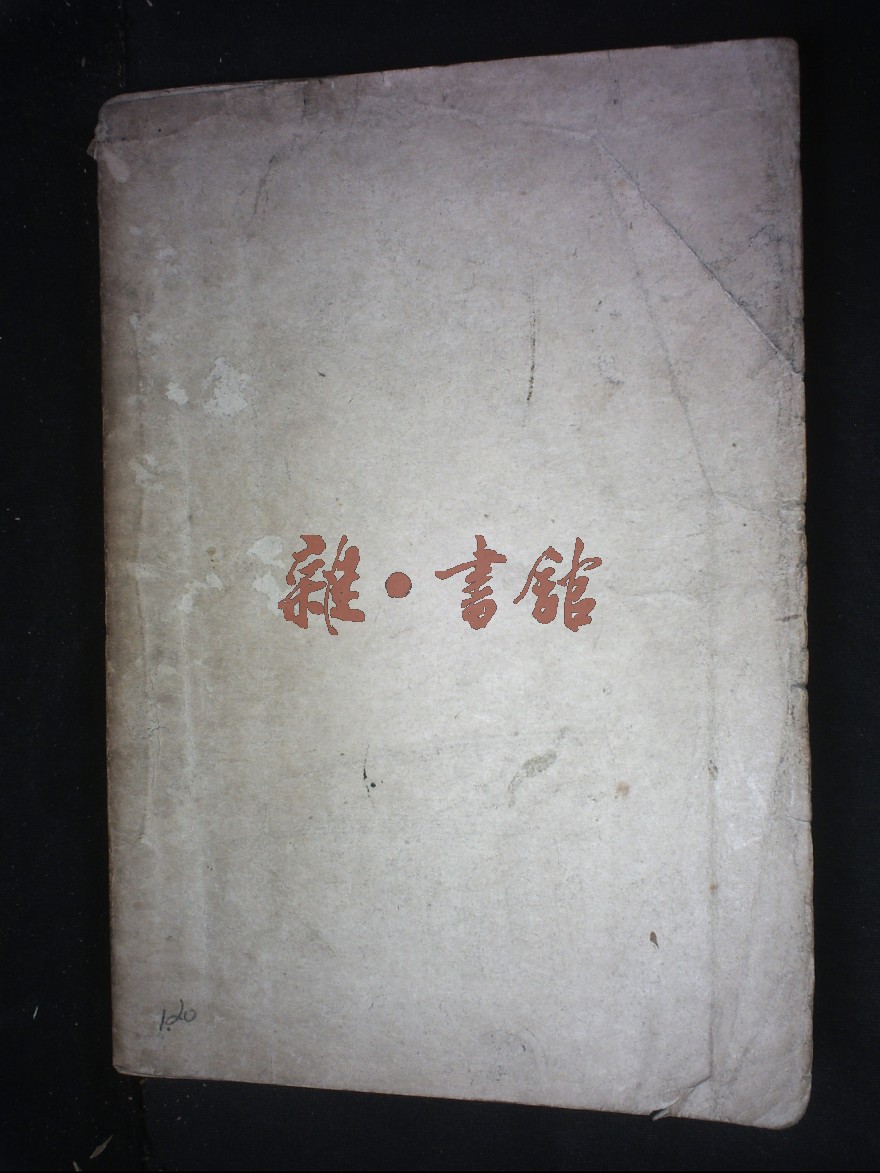 雜·書館
1.20